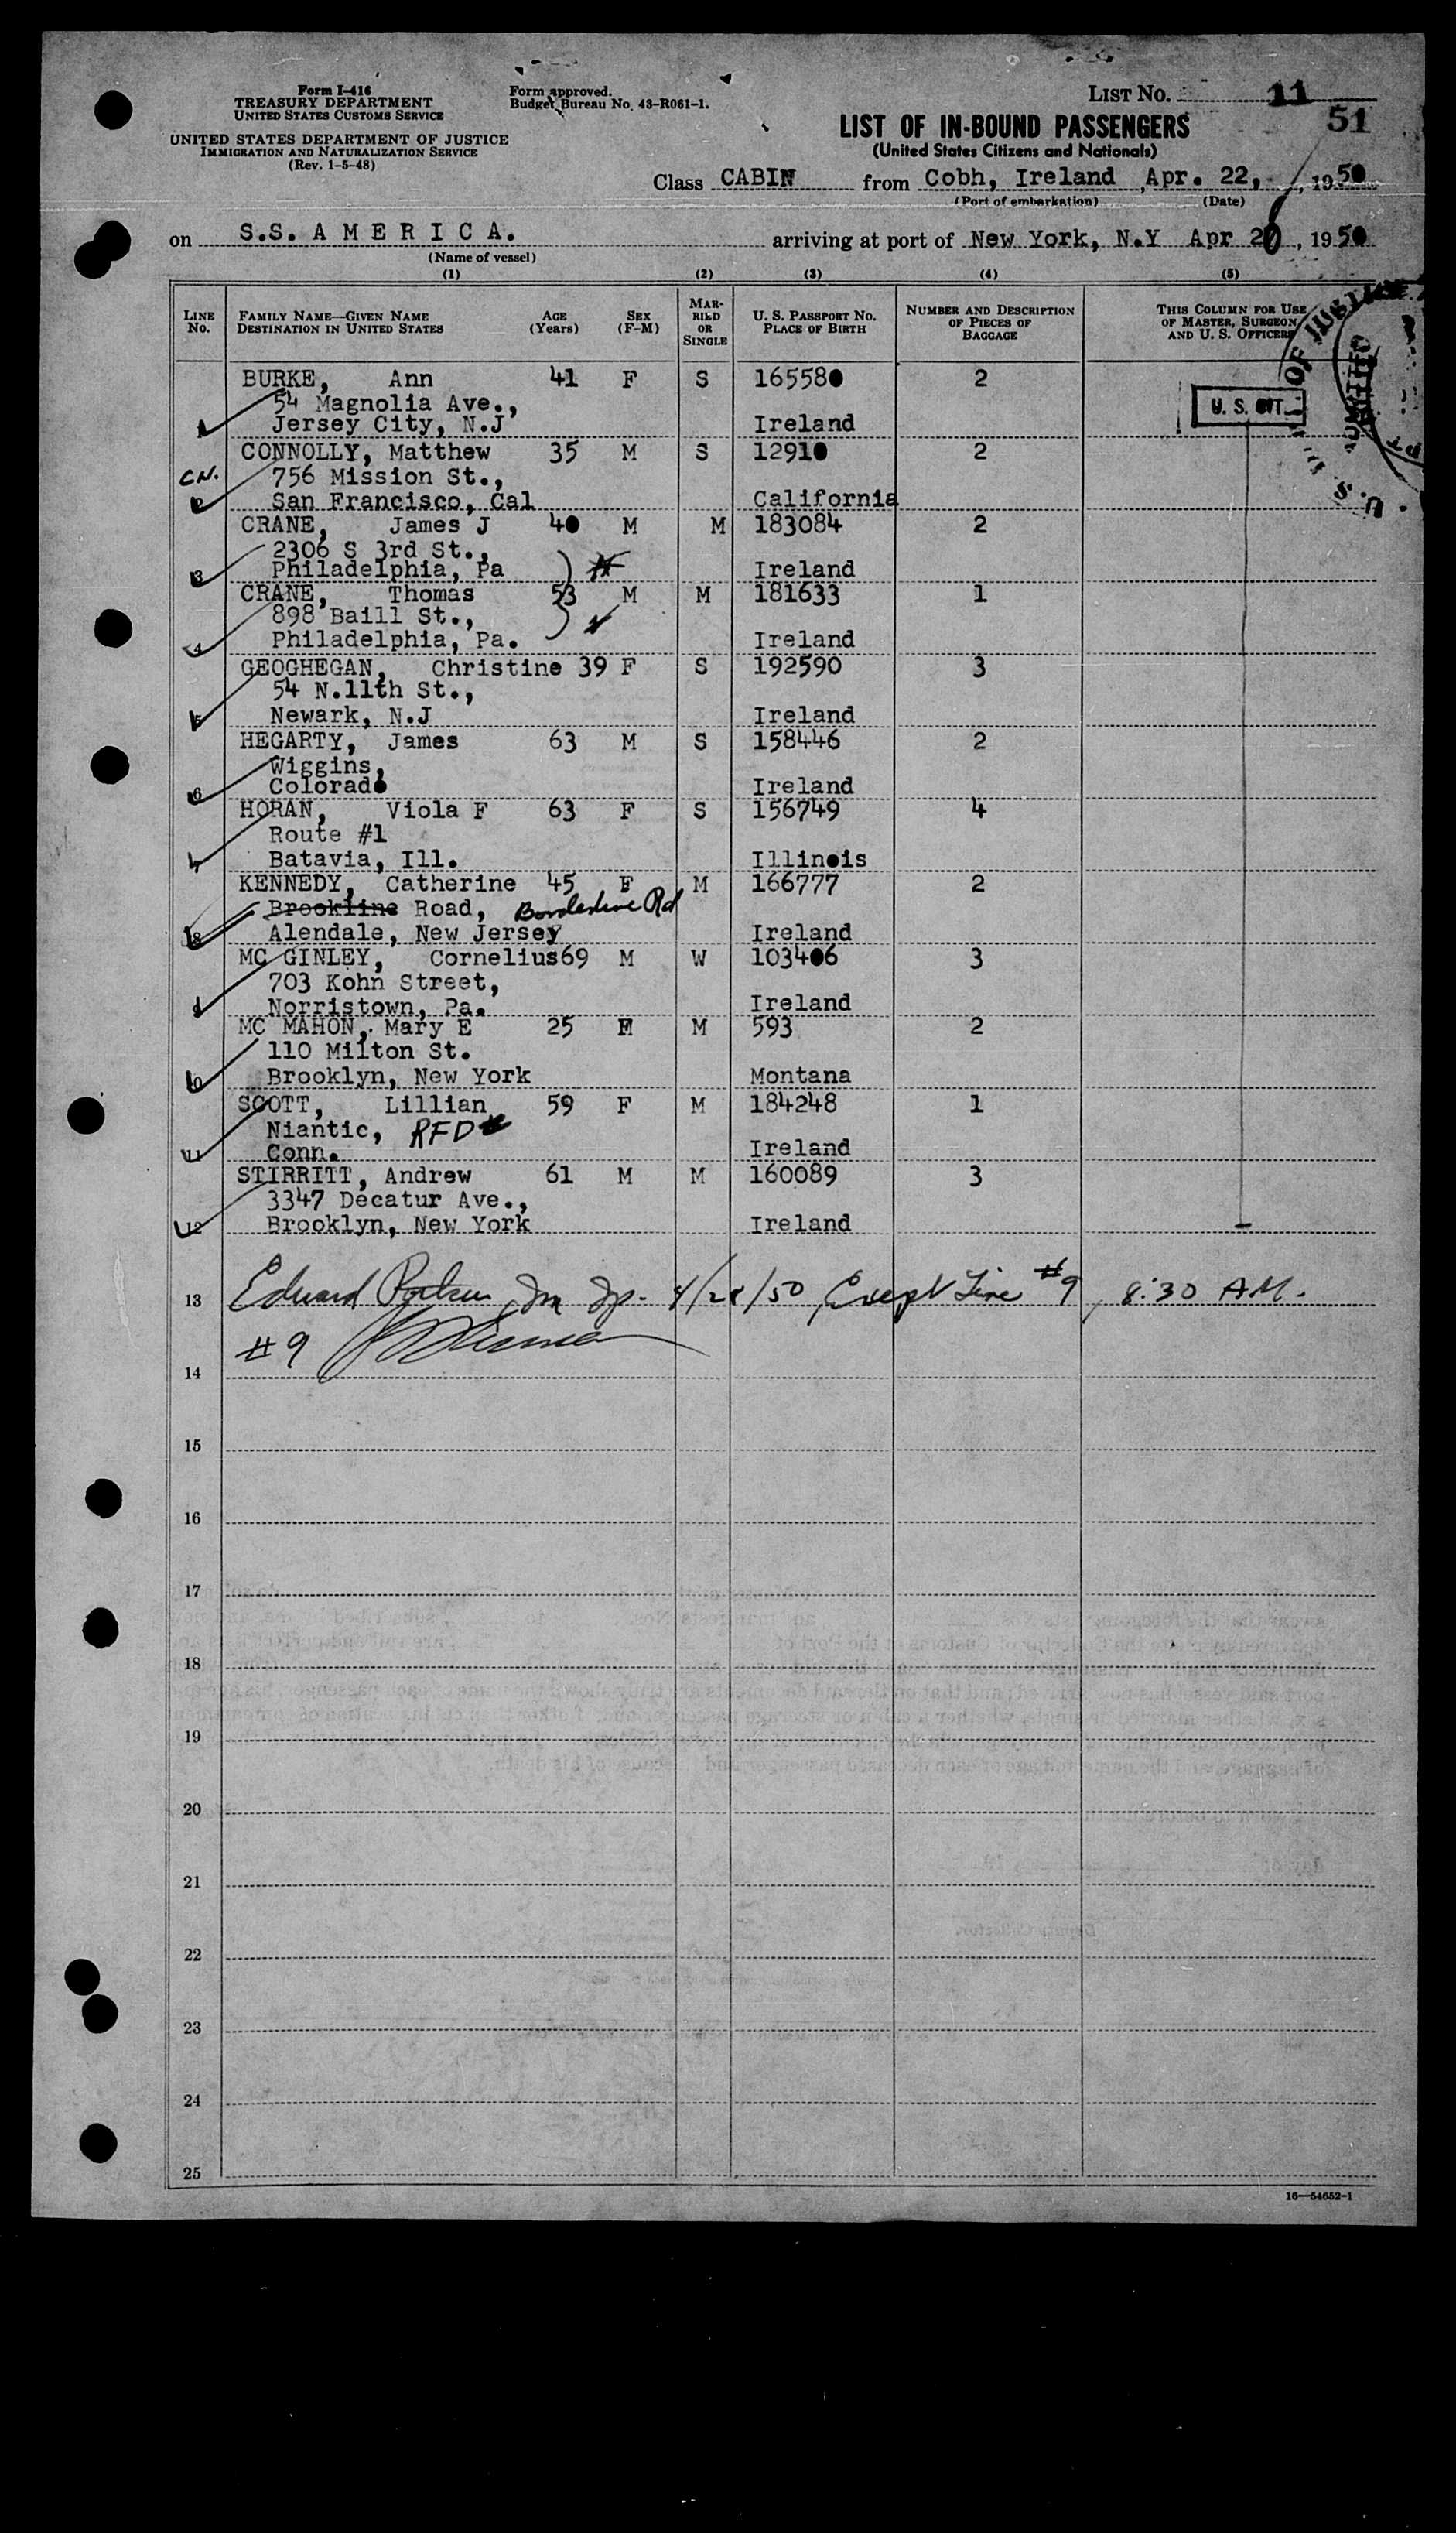 Form I-416
TREASURY DEPARTMENT
UNITED STATES CUSTOMS SERVICE
UNITED STATES DEPARTMENT OF JUSTICE
IMMIGRATION AND NATURALIZATION SERVICE
(Rev. 1-5-48)
Form approved.
Budget Bureau No. 43-R061-1.
LIST NO. 11
51
LIST OF IN-BOUND PASSENGERS
(United States Citizens and Nationals)
Class CABIN from Cobh, Ireland, Apr. 22, 1950
(Port of embarkation) (Date)
on S.S. A M E R I C A. arriving at port of New York, N.Y Apr 28, 1950
(Name of vessel)
(1) (2) (3) (4) (5)
LINE No. FAMILY NAME—GIVEN NAME DESTINATION IN UNITED STATES AGE (Years) SEX (F-M) MARRIED OR SINGLE U. S. PASSPORT NO. PLACE OF BIRTH NUMBER AND DESCRIPTION OF PIECES OF BAGGAGE THIS COLUMN FOR USE OF MASTER, SURGEON, AND U. S. OFFICERS
BURKE, Ann 41 F S 165580 2
54 Magnolia Ave., U. S. CIT.
1 Jersey City, N.J Ireland
CONNOLLY, Matthew 35 M S 12910 2
C.N. 756 Mission St.,
2 San Francisco, Cal California
CRANE, James J 40 M M 183084 2
2306 S 3rd St.,
3 Philadelphia, Pa Ireland
CRANE, Thomas 53 M M 181633 1
898 Baill St.,
4 Philadelphia, Pa. Ireland
GEOGHEGAN, Christine 39 F S 192590 3
54 N.11th St.,
5 Newark, N.J Ireland
HEGARTY, James 63 M S 158446 2
Wiggins,
6 Colorado Ireland
HORAN, Viola F 63 F S 156749 4
Route #1
7 Batavia, Ill. Illinois
KENNEDY, Catherine 45 F M 166777 2
Brookline Road, Borderline Rd
8 Alendale, New Jersey Ireland
MC GINLEY, Cornelius 69 M W 103406 3
703 Kohn Street,
9 Norristown, Pa. Ireland
MC MAHON, Mary E 25 F M 593 2
110 Milton St.
10 Brooklyn, New York Montana
SCOTT, Lillian 59 F M 184248 1
Niantic, RFD
11 Conn. Ireland
STIRRITT, Andrew 61 M M 160089 3
3347 Decatur Ave.,
12 Brooklyn, New York Ireland
13 Edward 4/28/50, Except Line #9, 8:30 A.M.
#9
14
15
16
17
18
19
20
21
22
23
24
25
16—54652-1